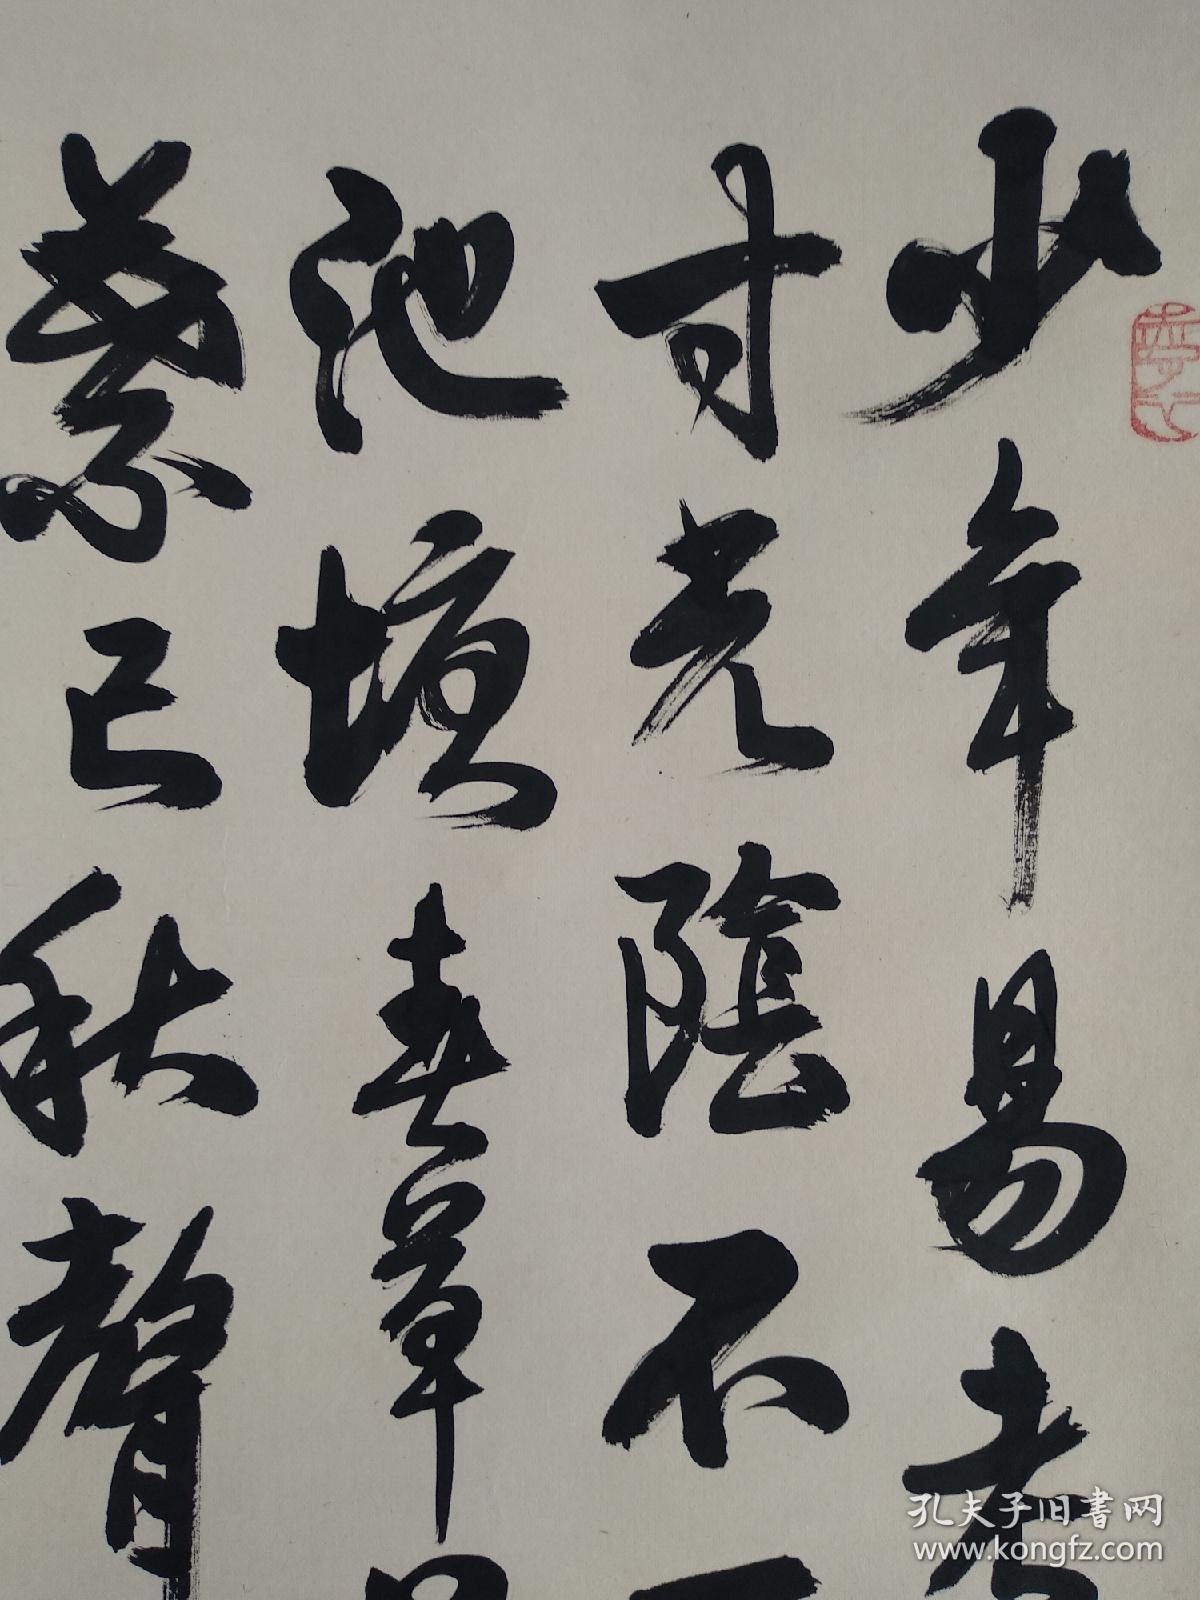 少年易老
寸光陰不
池塘春草
葉已秋聲
孔夫子旧书网
www.kongfz.com